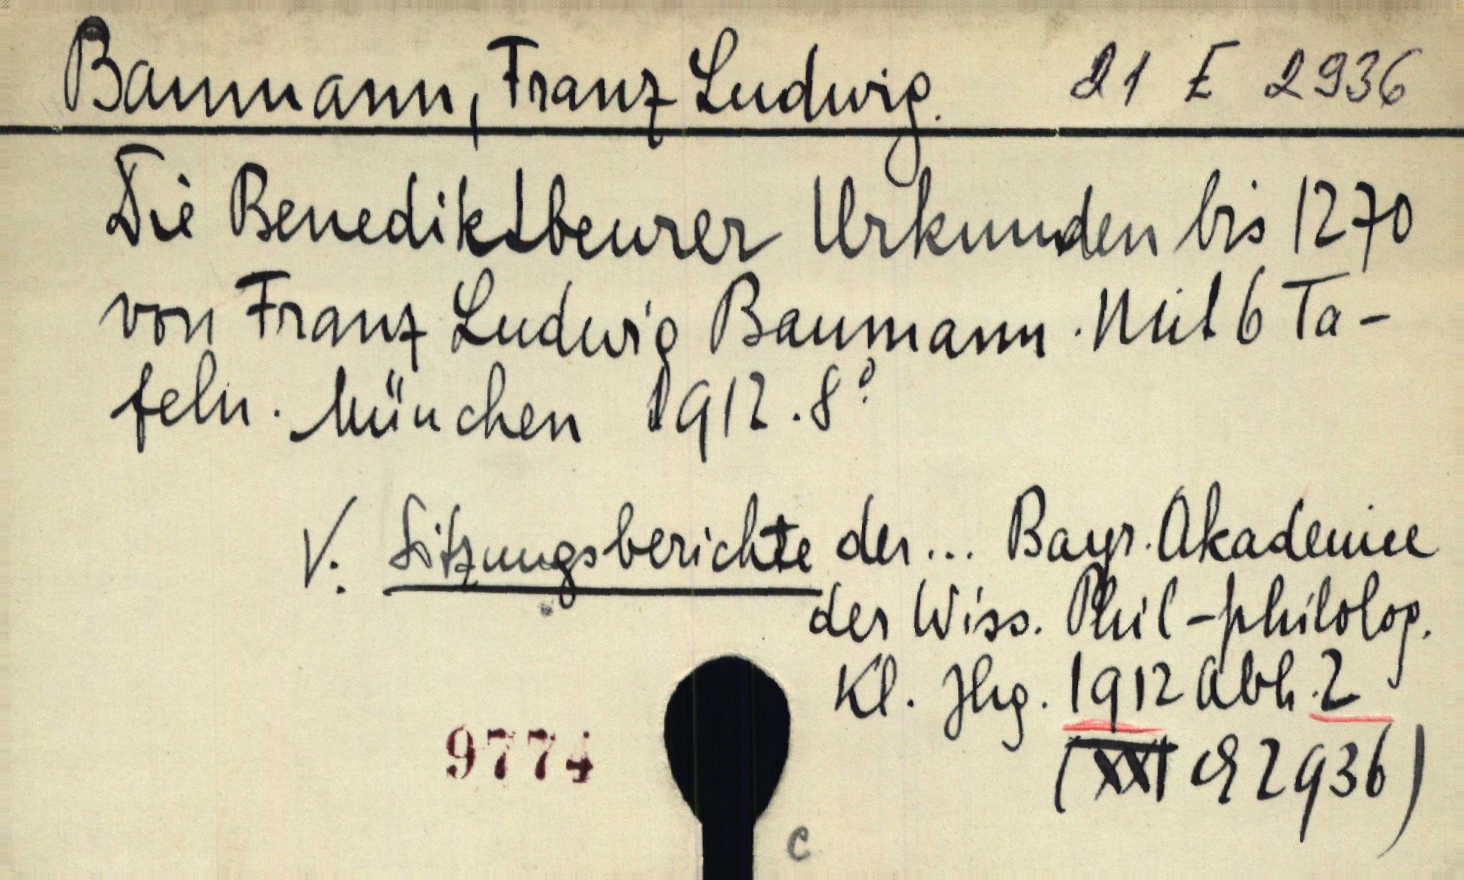 Baumann, Franz Ludwig. 21 E 2936
Die Benediktbeurer Urkunden bis 1270
von Franz Ludwig Baumann. Mit 6 Ta-
feln. München 1912. 8°
V. Sitzungsberichte der... Bayr. Akademie
der Wiss. Phil-philolog.
Kl. Jhg. 1912 Abh. 2
(XXI E 2936)
9774
c